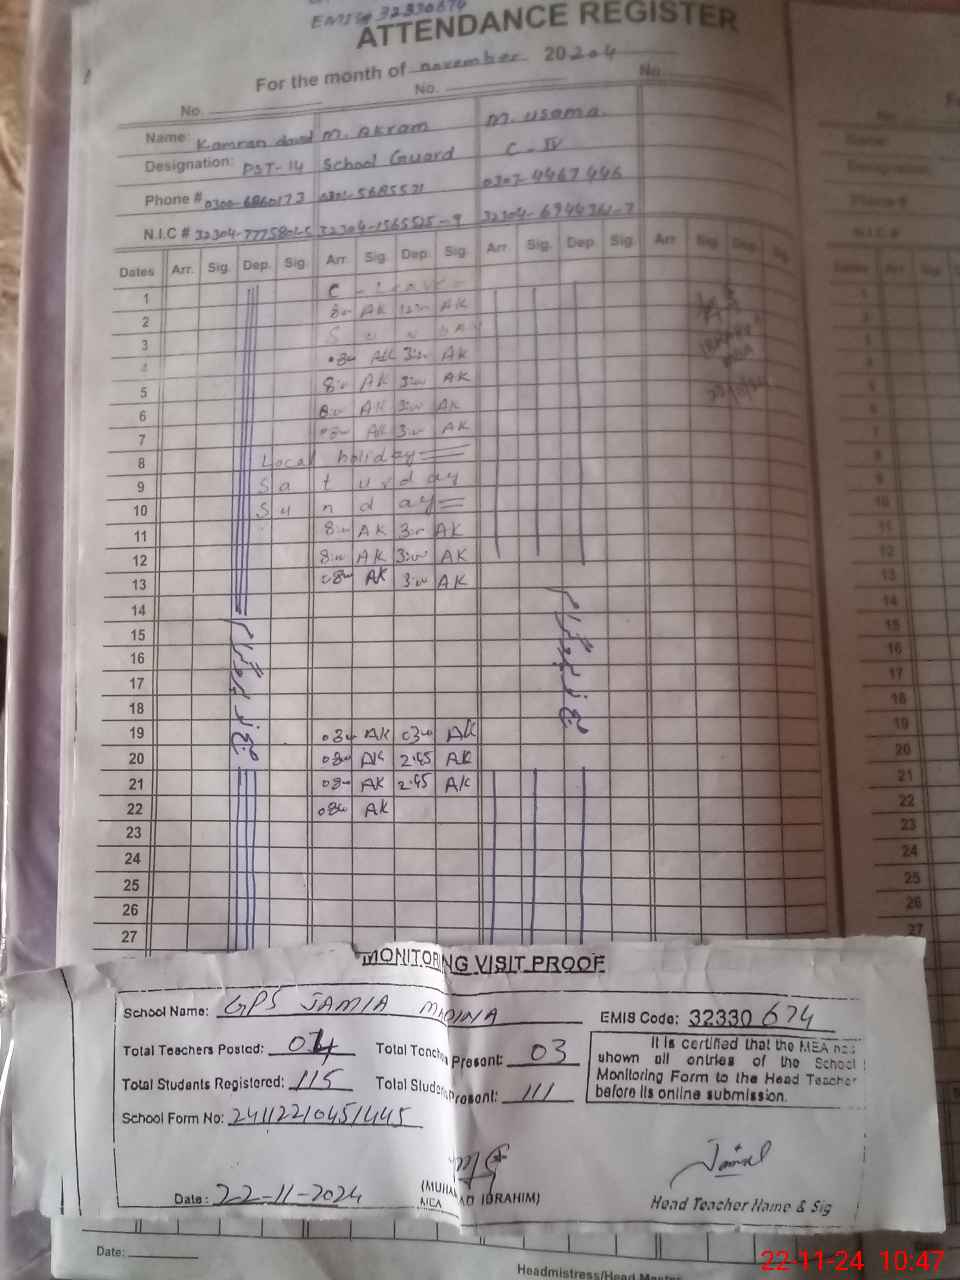 EMIS# 32330674
ATTENDANCE REGISTER
For the month of november 20204
No. No. No
Name: Kamran dawd M. Akram M. usama.
Designation: PST-14 School Guard C-IV
Phone # 0300-6860173 0301-5685521 0307-4467446
N.I.C # 32304-7775801-5 32304-1565525-9 32304-6944361-7
Dates Arr. Sig. Dep. Sig. Arr. Sig. Dep. Sig. Arr. Sig. Dep. Sig. Arr. Sig. Dep. Sig.
1 C - Leave -
2 8:00 AK 12:00 AK
3 S u n DAY
4 08:00 AK 3:00 AK
5 8:00 AK 3:00 AK
6 8:00 AK 3:00 AK
7 08:00 AK 3:00 AK
8 Local holiday
9 Sa t ur d ay
10 Su n d ay
11 8:00 AK 3:00 AK
12 8:00 AK 3:00 AK
13 08:00 AK 3:00 AK
14
15
16
17
18
19 08:00 AK 03:00 AK
20 08:00 AK 2:45 AK
21 08:00 AK 2:45 AK
22 08:00 AK
23
24
25
26
27
MONITORING VISIT PROOF
School Name: GPS JAMIA MADINA EMIS Code: 32330 674
Total Teachers Posted: 04 Total Teachers Present: 03
Total Students Registered: 115 Total Students Present: 111
It is certified that the MEA has
shown all entries of the School
Monitoring Form to the Head Teacher
before its online submission.
School Form No: 24112210451445
Date: 22-11-2024
(MUHAMMAD IBRAHIM)
MEA
Jamal
Head Teacher Name & Sig
Date:
Headmistress/Head Master
22-11-24 10:47